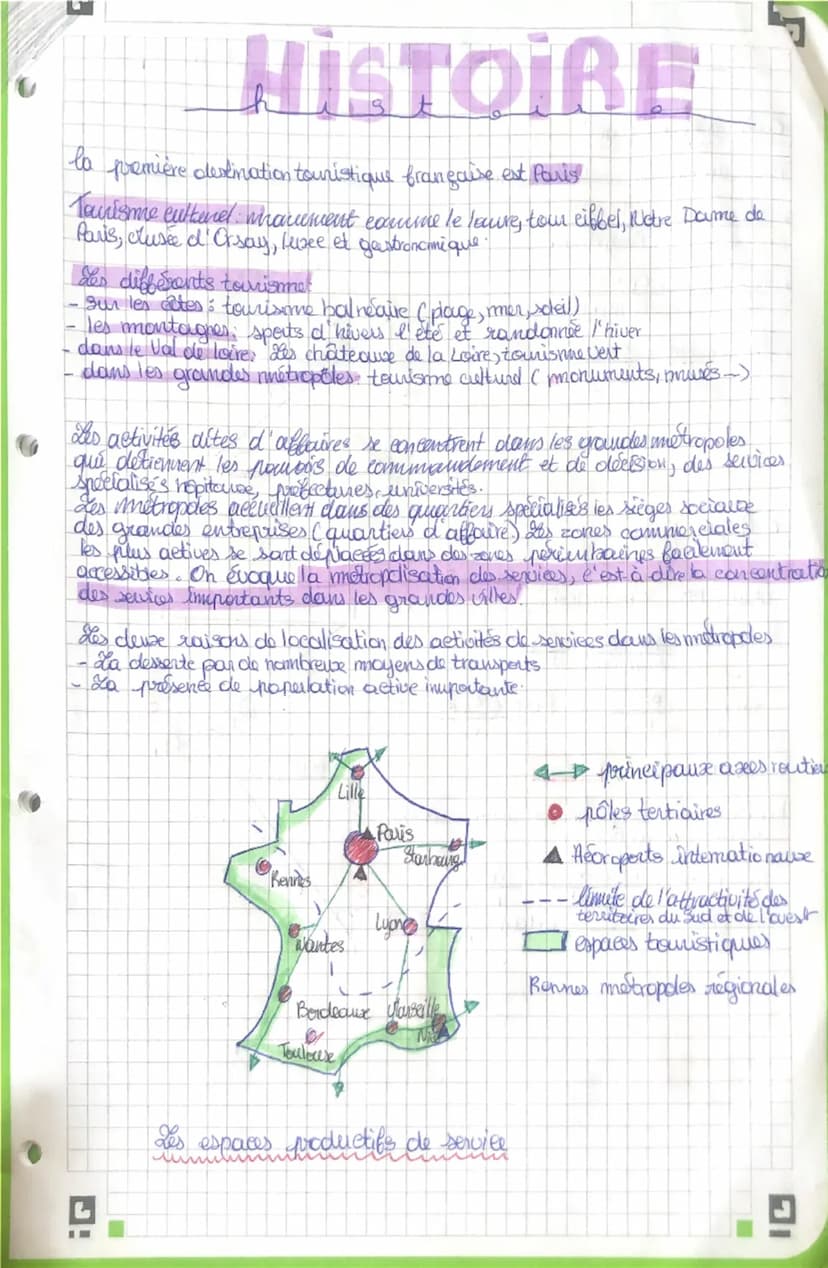 HiSTOiRE
histoire
la première destination touristique française est Paris
Tourisme culturel: monument comme le louvre, tour eiffel, Notre Dame de
Paris, Musée d'Orsay, luxe et gastronomique.
Les différents tourisme:
- sur les côtes: tourisme balnéaire (plage, mer, soleil)
- les montagnes: sports d'hivers l'été et randonnée l'hiver
- dans le Val de loire: Les châteaux de la Loire, tourisme vert
- dans les grandes métropôles: tourisme culturel (monuments, musés...)
Les activités dites d'affaires se concentrent dans les grandes métropoles
qui détiennent les pouvoirs de commandement et de décision, des services
spécialisés hôpitaux, préfectures, universités.
Les métropoles accueillent dans des quartiers spécialisés les sièges sociaux
des grandes entreprises (quartiers d'affaire) Les zones commerciales
les plus actives se sont déplacées dans des zones périurbaines facilement
accessibles. On évoque la métropolisation des services, c'est à dire la concentratio
des services importants dans les grandes villes.
Les deux raisons de localisation des activités de services dans les métropoles
- La desserte par de nombreux moyens de transports
- La présence de population active importante.
Lille
Paris
Starbourg
Rennes
Lyon
Nantes
Bordeaux
Marseille
Nice
Toulouse
principaux axes routier
pôles tertiaires
Aéoroports internationaux
limite de l'attractivité des
territoires du Sud et de l'ouest
espaces touristiques
Rennes métropoles régionales
Les espaces productifs de service